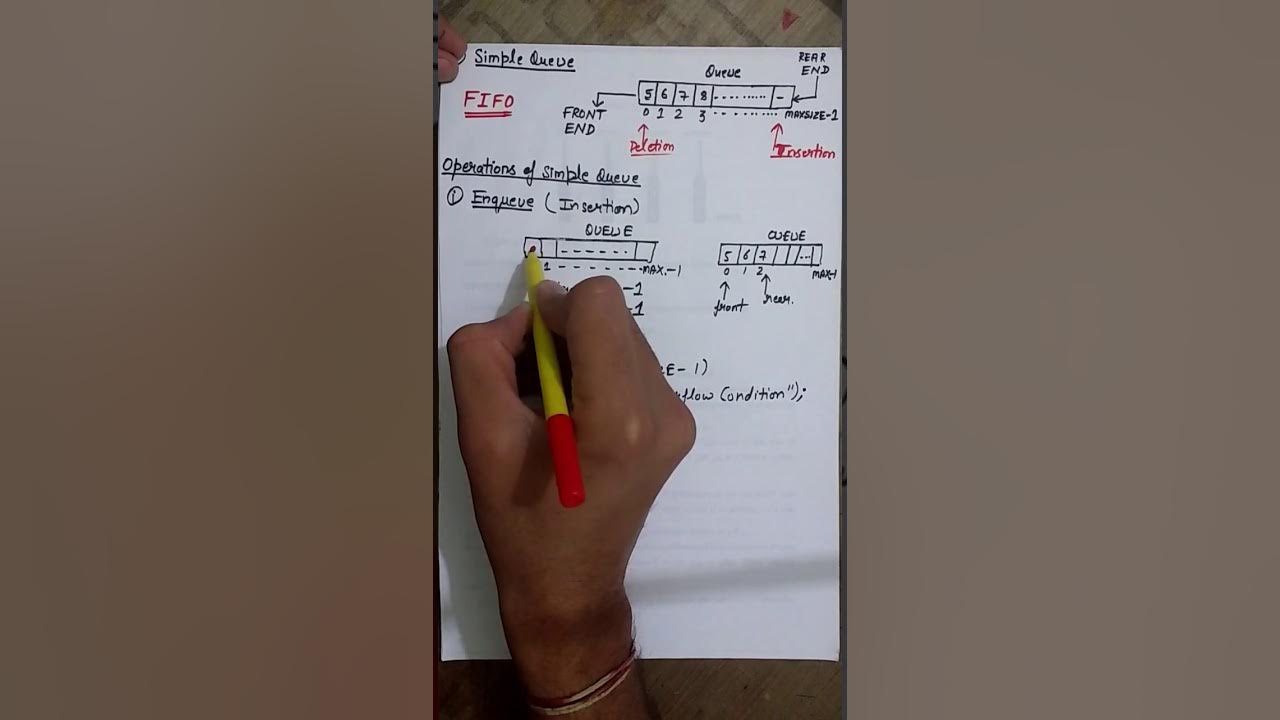 Simple Queue
FIFO
Queue
REAR
END
5 6 7 8 ---------- -
0 1 2 3 ---------- MAXSIZE-1
FRONT
END
Deletion
Insertion
Operations of simple Queue
(i) Enqueue (Insertion)
QUEUE
1 - - - - - - - MAX.-1
-1
-1
QUEUE
5 6 7 ...
0 1 2 MAX-1
front rear.
E-1)
flow Condition");